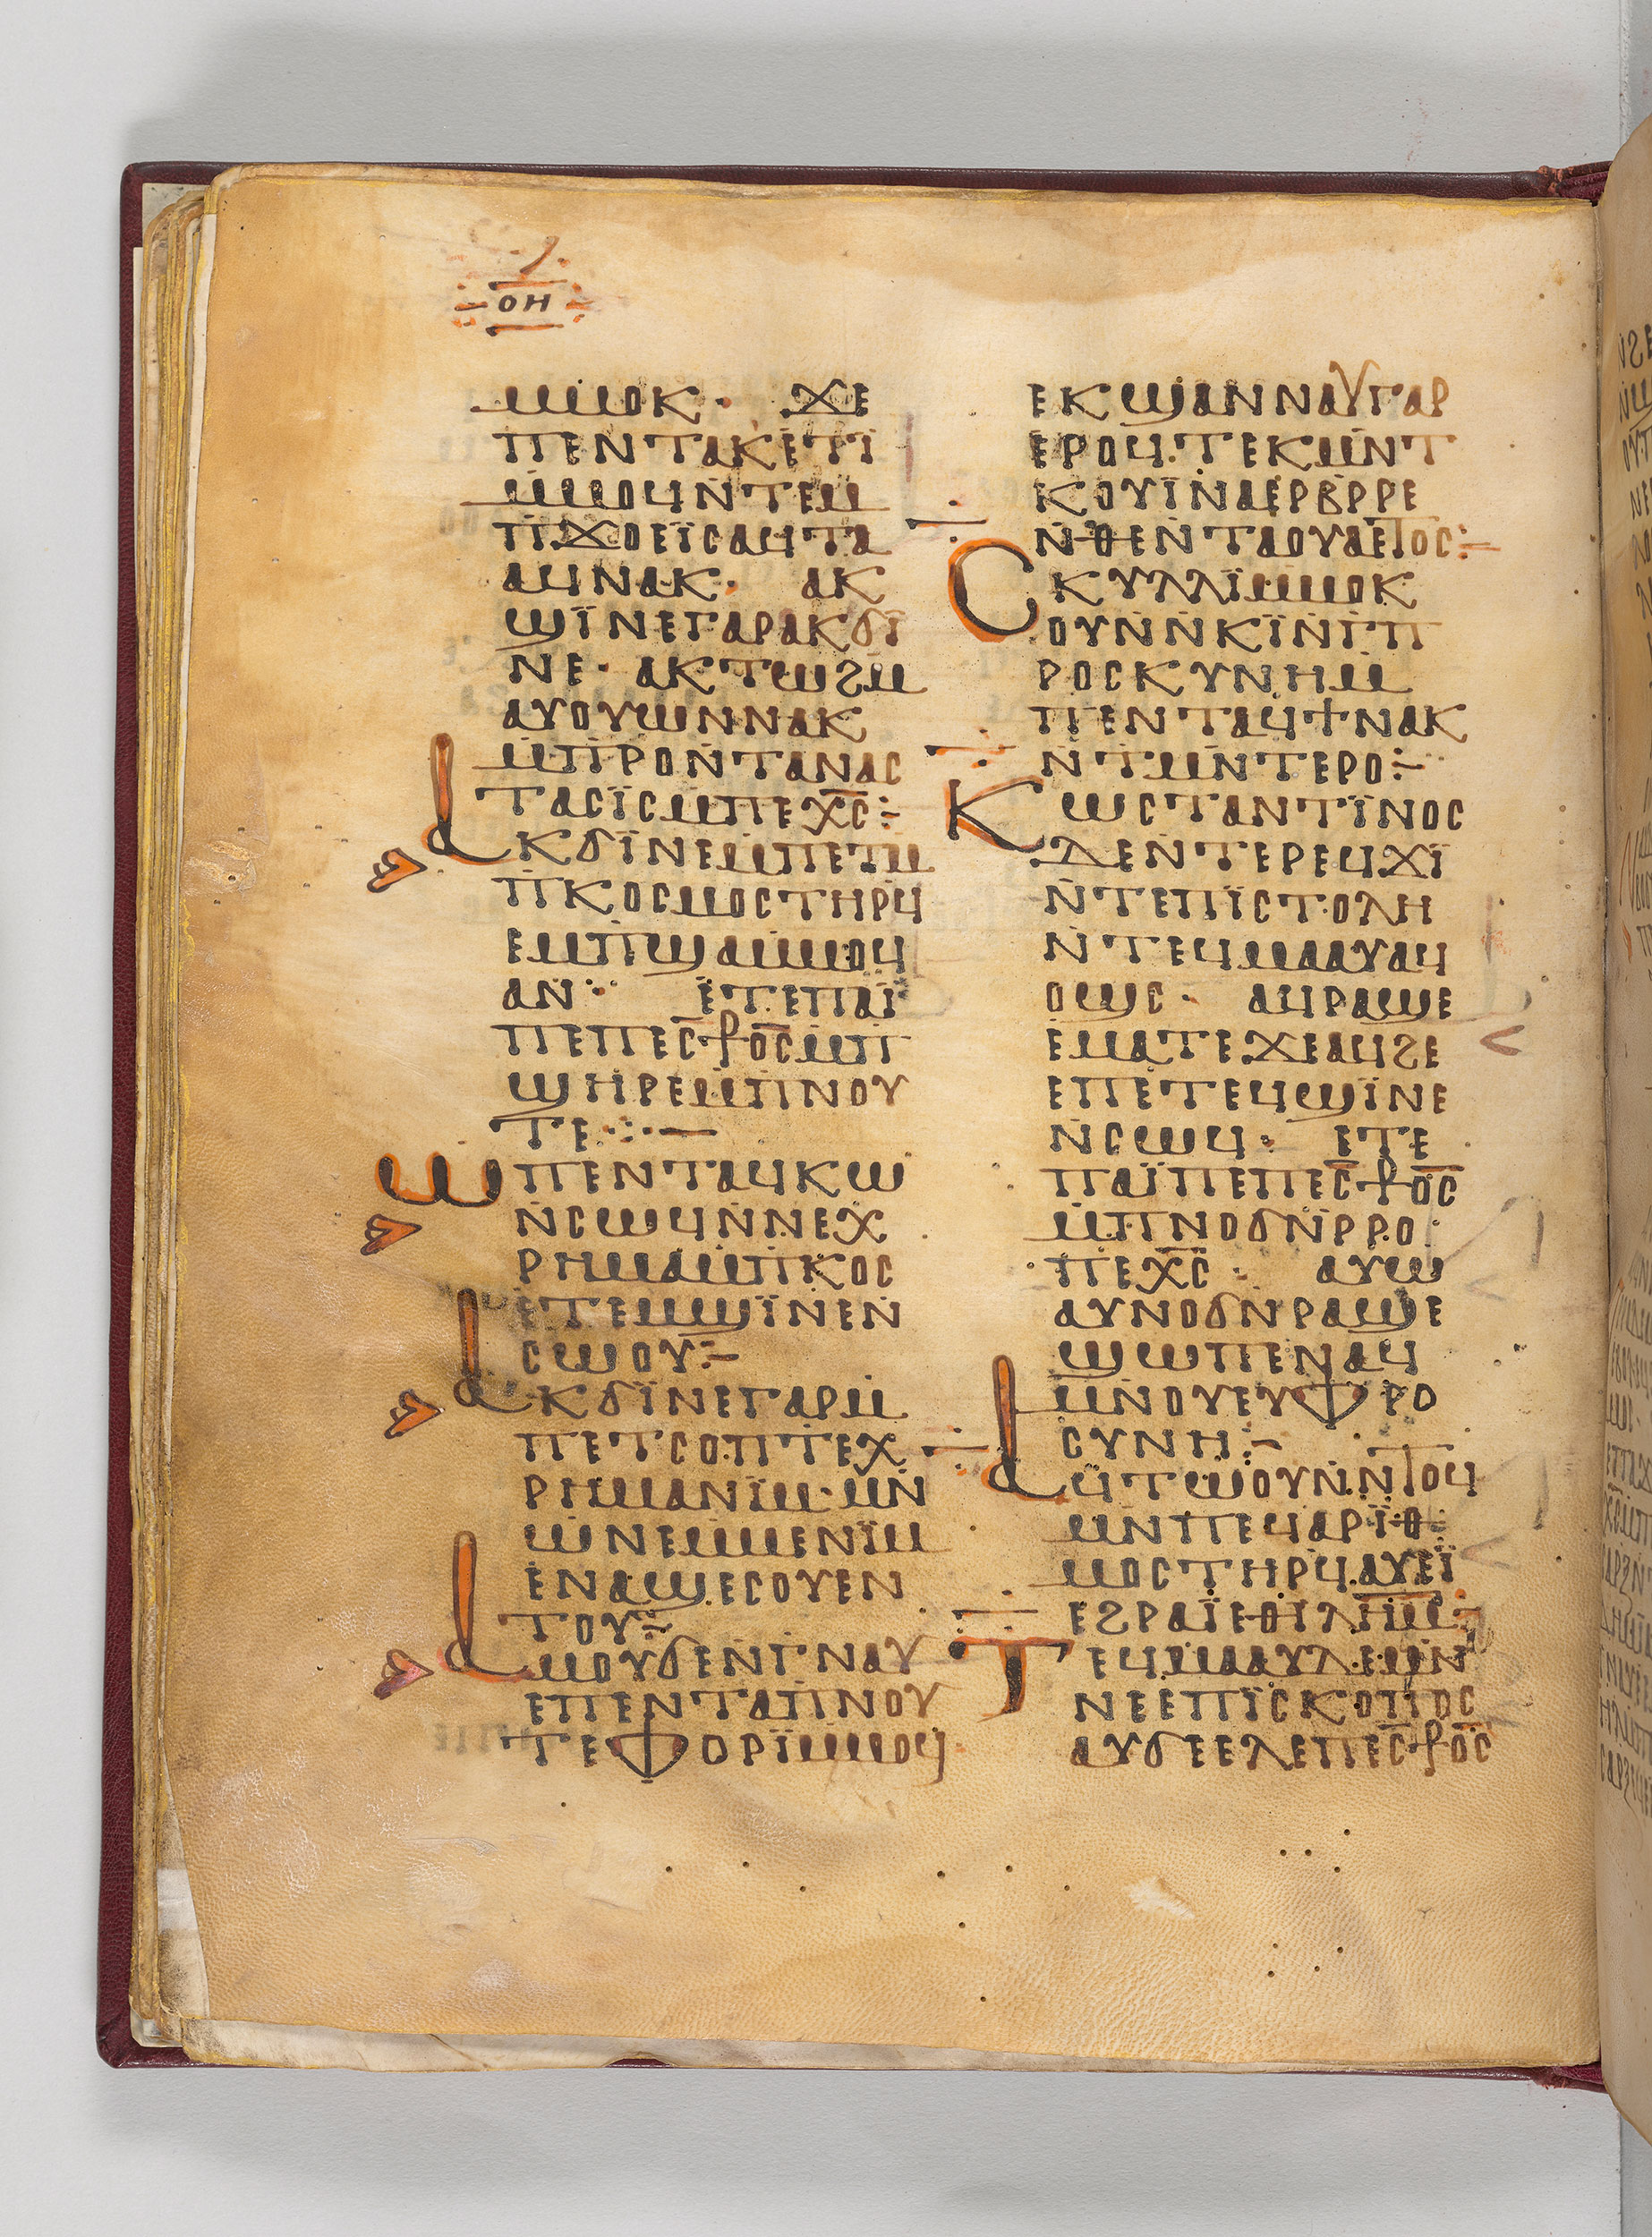 ⲟⲏ
ⲙⲙⲟⲕ· ϫⲉ
ⲡⲉⲛⲧⲁⲕⲉⲧⲓ
ⲙⲙⲟϥⲛⲧⲉⲙ
ⲡϫⲟⲉⲓⲥⲁϥⲧⲁ
ⲁϥⲛⲁⲕ· ⲁⲕ
ϣⲓⲛⲉⲅⲁⲣⲁⲕϭⲓ
ⲛⲉ· ⲁⲕⲧⲱϩⲙ
ⲁⲩⲟⲩⲱⲛⲛⲁⲕ
ⲙⲡⲣⲟⲛⲧⲁⲛⲁⲥ
ⲧⲁⲥⲓⲥⲙⲡⲉⲭ̅ⲥ̅:
ⲁⲕϭⲓⲛⲉⲙⲡⲉⲧⲙ
ⲡⲕⲟⲥⲙⲟⲥⲧⲏⲣϥ
ⲉⲙⲡϣⲁⲙⲙⲟϥ
ⲁⲛ·· ⲉⲧⲉⲡⲁⲓ
ⲡⲉⲡⲉⲥ̅⳨ⲟ̅ⲥ̅ⲙⲡ
ϣⲏⲣⲉⲙⲡⲛⲟⲩ
ⲧⲉ·:·—
ⲱⲡⲉⲛⲧⲁϥⲕⲱ
ⲛⲥⲱϥⲛⲛⲉⲭ
ⲣⲏⲙⲁⲙⲡⲕⲟⲥ
ⲉⲧⲉⲙϣⲓⲛⲉⲛ
ⲥⲱⲟⲩ:–
ⲁⲕϭⲓⲛⲉⲅⲁⲣⲙ
ⲡⲉⲧⲥⲟⲧⲡⲉⲭ
ⲣⲏⲙⲁⲛⲓⲙ·ⲙⲛ
ⲱⲛⲉⲙⲙⲉⲛⲓⲙ
ⲉⲛⲁϣⲉⲥⲟⲩⲉⲛ
ⲧⲟⲩ:–
ⲁⲙⲟⲩϭⲉⲛⲅⲛⲁⲩ
ⲉⲡⲉⲛⲧⲁⲡⲛⲟⲩ
ⲧⲉⲫⲟⲣⲓⲙⲙⲟϥ·
ⲉⲕϣⲁⲛⲛⲁⲩⲅⲁⲣ
ⲉⲣⲟϥ·ⲧⲉⲕⲙⲛⲧ
ⲕⲟⲩⲓⲛⲁⲉⲣⲃⲣⲣⲉ
ⲛⲑⲉⲛⲧⲁⲟⲩⲁⲉⲧⲟⲥ:–
ⲥⲕⲩⲗⲗⲓⲙⲙⲟⲕ
ⲟⲩⲛⲛⲕⲓⲛⲅⲡ
ⲣⲟⲥⲕⲩⲛⲏⲙ
ⲡⲉⲛⲧⲁϥϯⲛⲁⲕ
ⲛⲧⲙⲛⲧⲉⲣⲟ:–
ⲕⲱⲥⲧⲁⲛⲧⲓⲛⲟⲥ
ⲇⲉⲛⲧⲉⲣⲉϥϫⲓ
ⲛⲧⲉⲡⲓⲥⲧⲟⲗⲏ
ⲛⲧⲉϥⲙⲁⲁⲩⲁϥ
ⲟϣⲥ· ⲁϥⲣⲁϣⲉ
ⲉⲙⲁⲧⲉϫⲉⲁϥϩⲉ
ⲉⲡⲉⲧⲉϥϣⲓⲛⲉ
ⲛⲥⲱϥ· ⲉⲧⲉ
ⲡⲁⲓⲡⲉⲡⲉⲥ̅⳨ⲟ̅ⲥ̅
ⲙⲡⲛⲟϭⲛⲣⲣⲟ
ⲡⲉⲭ̅ⲥ̅· ⲁⲩⲱ
ⲁⲩⲛⲟϭⲛⲣⲁϣⲉ
ϣⲱⲡⲉⲛⲁϥ
ⲙⲛⲟⲩⲉⲩⲫⲣⲟ
ⲥⲩⲛⲏ:–
ⲁϥⲧⲱⲟⲩⲛⲛⲧⲟϥ
ⲙⲛⲡⲉϥⲁⲣⲓⲑ
ⲙⲟⲥⲧⲏⲣϥ·ⲁⲩⲉⲓ
ⲉϩⲣⲁⲓⲉⲑⲓⲗⲏⲙ:
ⲧⲉϥⲙⲁⲁⲩⲇⲉⲙⲛ
ⲛⲉⲉⲡⲓⲥⲕⲟⲡⲟⲥ
ⲁⲩϭⲉⲉⲗⲉⲡⲉⲥ̅⳨ⲟ̅ⲥ̅